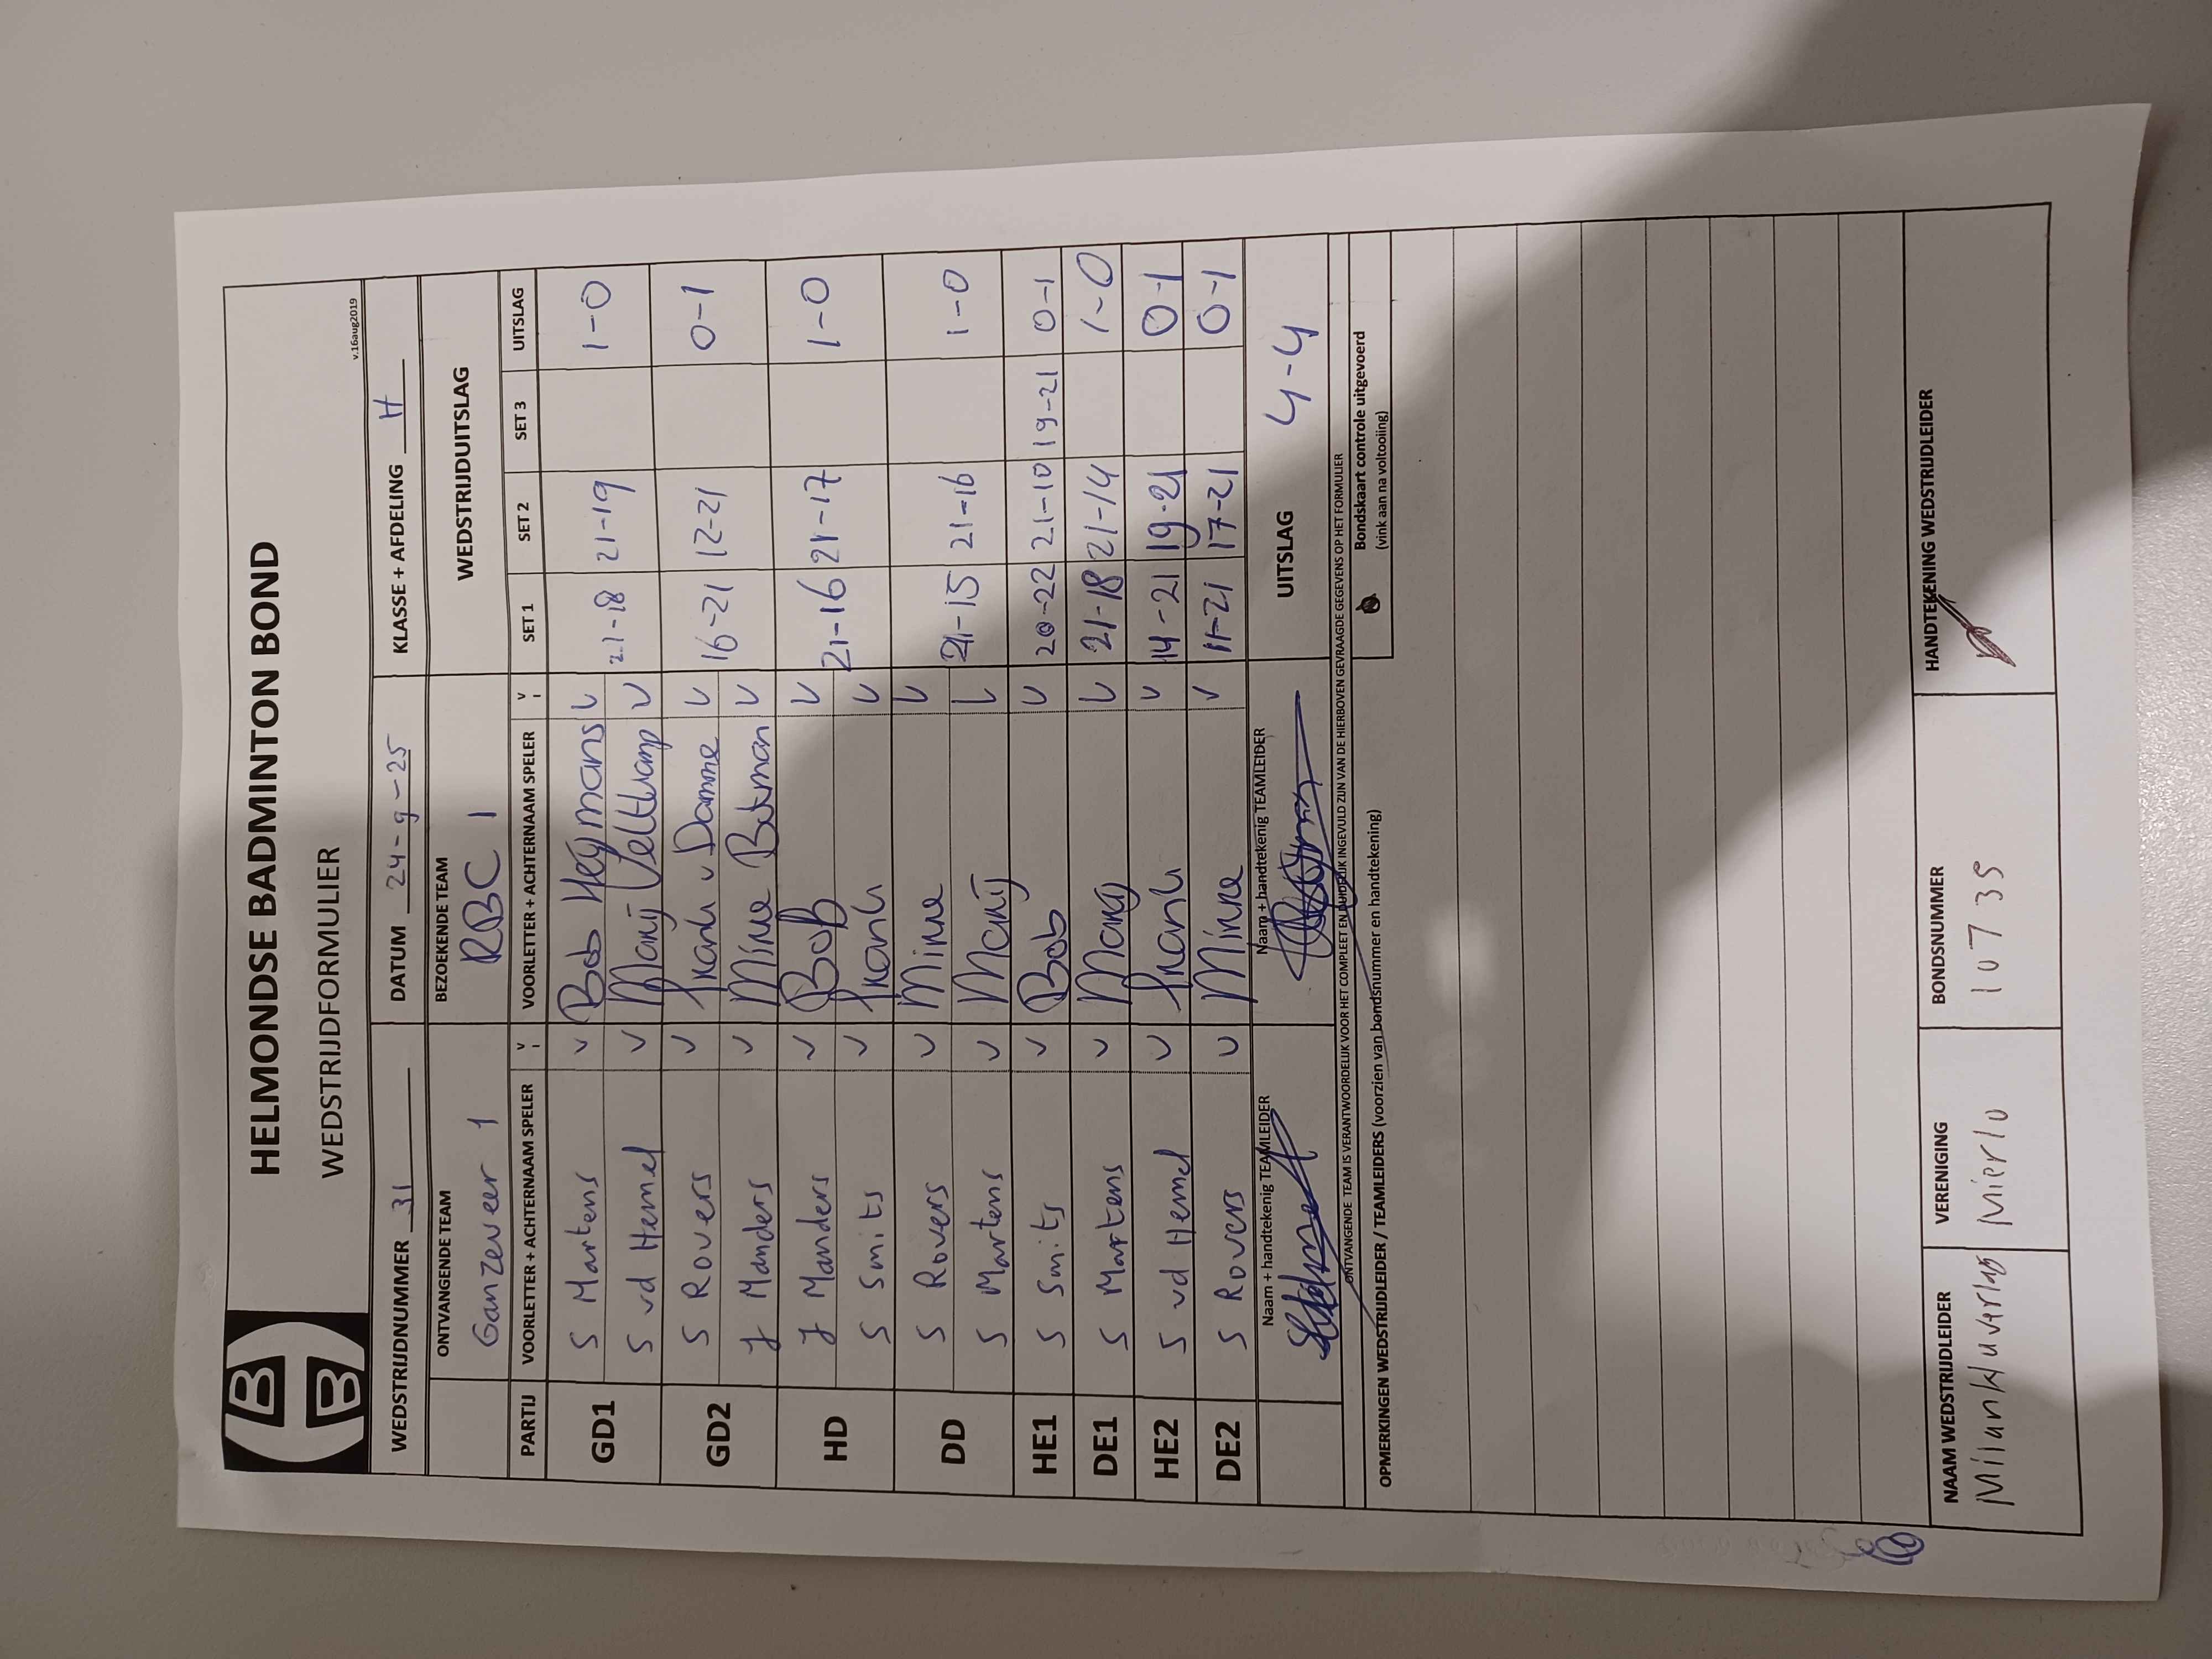 HELMONDSE BADMINTON BOND
WEDSTRIJDFORMULIER
v.16aug2019
WEDSTRIJDNUMMER 31 DATUM 24-9-25 KLASSE + AFDELING H
ONTVANGENDE TEAM BEZOEKENDE TEAM WEDSTRIJDUITSLAG
Ganzeveer 1 RBC 1
PARTIJ VOORLETTER + ACHTERNAAM SPELER V VOORLETTER + ACHTERNAAM SPELER V SET 1 SET 2 SET 3 UITSLAG
GD1 S Martens v Bob Heymans v 21-18 21-19 1-0
S vd Hemel v Marij Veltkamp v
GD2 S Rovers v Frank v Damme v 16-21 12-21 0-1
J Manders v Minne Boxman v
HD J Manders v Bob v 21-16 21-17 1-0
S Smits v Frank v
DD S Rovers v Minne v 21-15 21-16 1-0
S Martens v Marij v
HE1 S Smits v Bob v 20-22 21-10 19-21 0-1
DE1 S Martens v Marij v 21-18 21-14 1-0
HE2 S vd Hemel v Frank v 14-21 19-21 0-1
DE2 S Rovers v Minne v 11-21 17-21 0-1
Naam + handtekenig TEAMLEIDER Naam + handtekenig TEAMLEIDER UITSLAG 4-4
ONTVANGENDE TEAM IS VERANTWOORDELIJK VOOR HET COMPLEET EN DUIDELIJK INGEVULD ZIJN VAN DE HIERBOVEN GEVRAAGDE GEGEVENS OP HET FORMULIER
OPMERKINGEN WEDSTRIJDLEIDER / TEAMLEIDERS (voorzien van bondsnummer en handtekening)
Bondskaart controle uitgevoerd
(vink aan na voltooling)
NAAM WEDSTRIJDLEIDER VERENIGING BONDSNUMMER HANDTEKENING WEDSTRIJDLEIDER
Milan Mierlo 10735